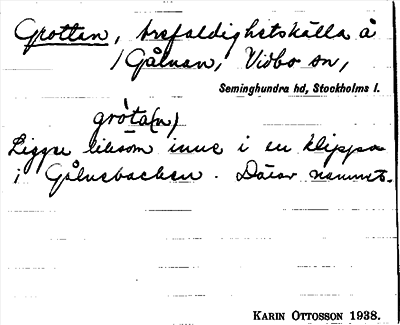 Grottan, trefaldighetskälla å
/Gålnan, Vidbo sn,
Seminghundra hd, Stockholms l.
gròta(n)
Ligger liksom inne i en klippa
i Gålnebacken. Därav namnet.
KARIN OTTOSSON 1938.